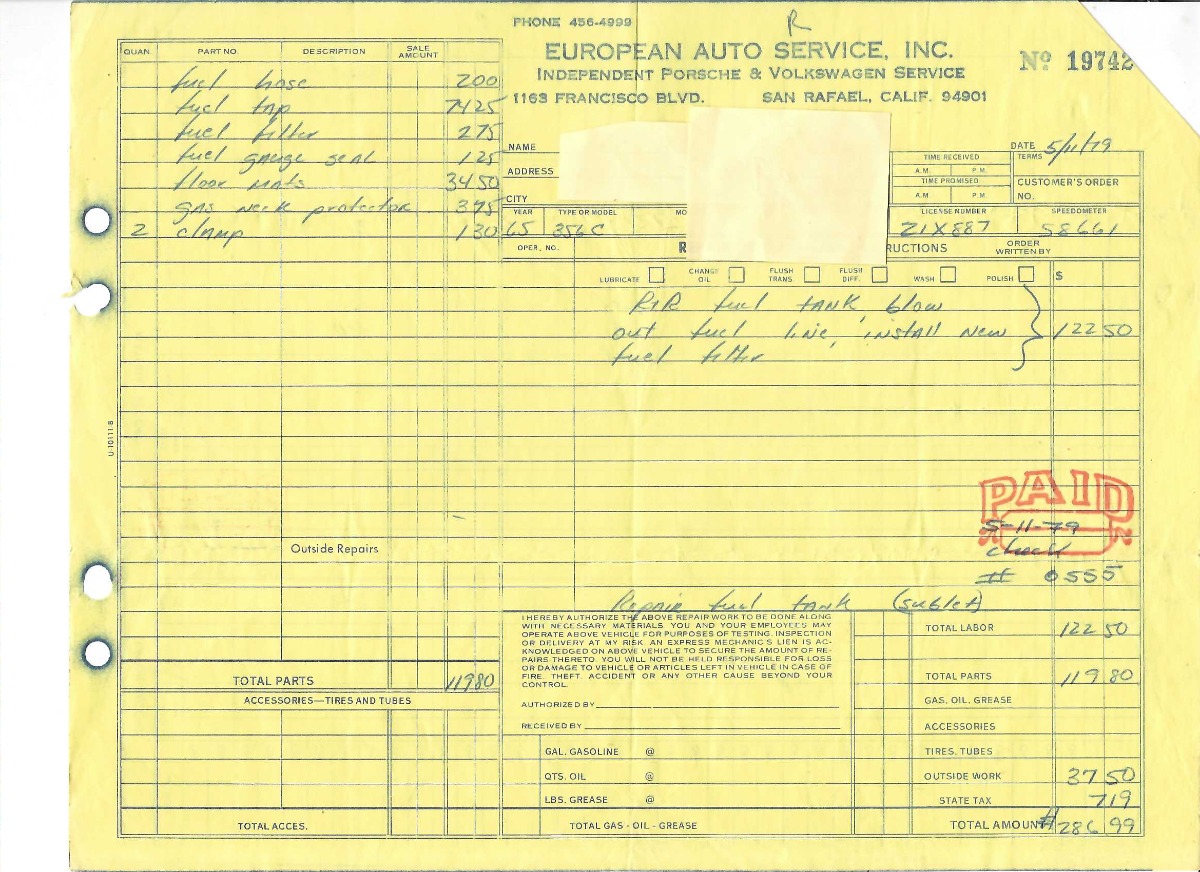 PHONE 456-4999
R
EUROPEAN AUTO SERVICE, INC.
INDEPENDENT PORSCHE & VOLKSWAGEN SERVICE
1163 FRANCISCO BLVD. SAN RAFAEL, CALIF. 94901
Nº 19742
QUAN. PART NO. DESCRIPTION SALE AMOUNT
fuel hose 200
fuel tap 7425
fuel filter 275
fuel gauge seal 125
floor mats 3450
gas neck protector 375
2 clamp 130
NAME
ADDRESS
CITY
DATE 5/11/79
TIME RECEIVED
A.M. P.M.
TIME PROMISED
A.M. P.M.
TERMS
CUSTOMER'S ORDER NO.
YEAR TYPE OR MODEL MO LICENSE NUMBER SPEEDOMETER
65 356C Z1X887 58661
OPER. NO. R RUCTIONS ORDER WRITTEN BY
LUBRICATE CHANGE OIL FLUSH TRANS. FLUSH DIFF. WASH POLISH $
R&R fuel tank, blow
out fuel line, install new 12250
fuel filter
U-10111-8
PAID
5-11-79
check
# 0555
Outside Repairs
Repair fuel tank (sublet)
I HEREBY AUTHORIZE THE ABOVE REPAIR WORK TO BE DONE ALONG
WITH NECESSARY MATERIALS. YOU AND YOUR EMPLOYEES MAY
OPERATE ABOVE VEHICLE FOR PURPOSES OF TESTING, INSPECTION
OR DELIVERY AT MY RISK. AN EXPRESS MECHANIC'S LIEN IS AC-
KNOWLEDGED ON ABOVE VEHICLE TO SECURE THE AMOUNT OF RE-
PAIRS THERETO. YOU WILL NOT BE HELD RESPONSIBLE FOR LOSS
OR DAMAGE TO VEHICLE OR ARTICLES LEFT IN VEHICLE IN CASE OF
FIRE, THEFT, ACCIDENT OR ANY OTHER CAUSE BEYOND YOUR
CONTROL.
AUTHORIZED BY
RECEIVED BY
TOTAL PARTS 11980
ACCESSORIES—TIRES AND TUBES
TOTAL ACCES.
GAL. GASOLINE @
QTS. OIL @
LBS. GREASE @
TOTAL GAS - OIL - GREASE
TOTAL LABOR 12250
TOTAL PARTS 11980
GAS, OIL, GREASE
ACCESSORIES
TIRES, TUBES
OUTSIDE WORK 3750
STATE TAX 719
TOTAL AMOUNT # 286.99